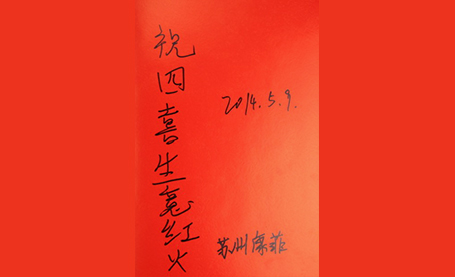 祝四喜生意红火
2014.5.9.
苏州廖菲